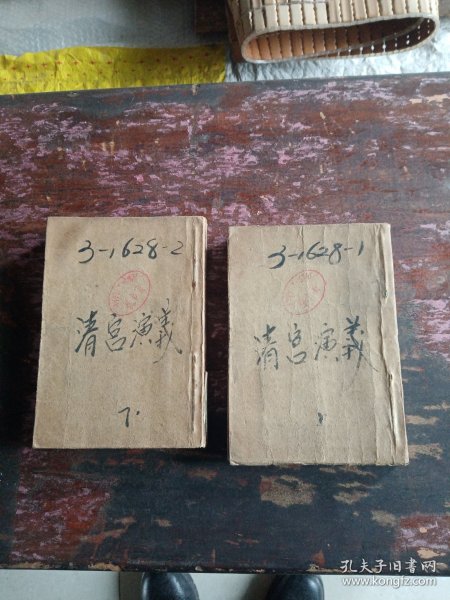 3-1628-2
清宫演義
下.
3-1628-1
清宫演義
孔夫子旧书网
www.kongfz.com